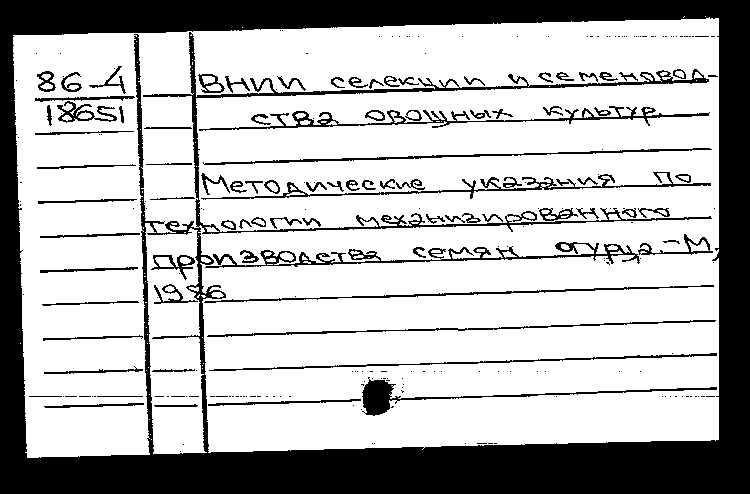 86-4 ВНИИ селекции и семеновод-
18651 ства овощных культур.
Методические указания по
технологии механизированного
производства семян огурца.-М,
1986